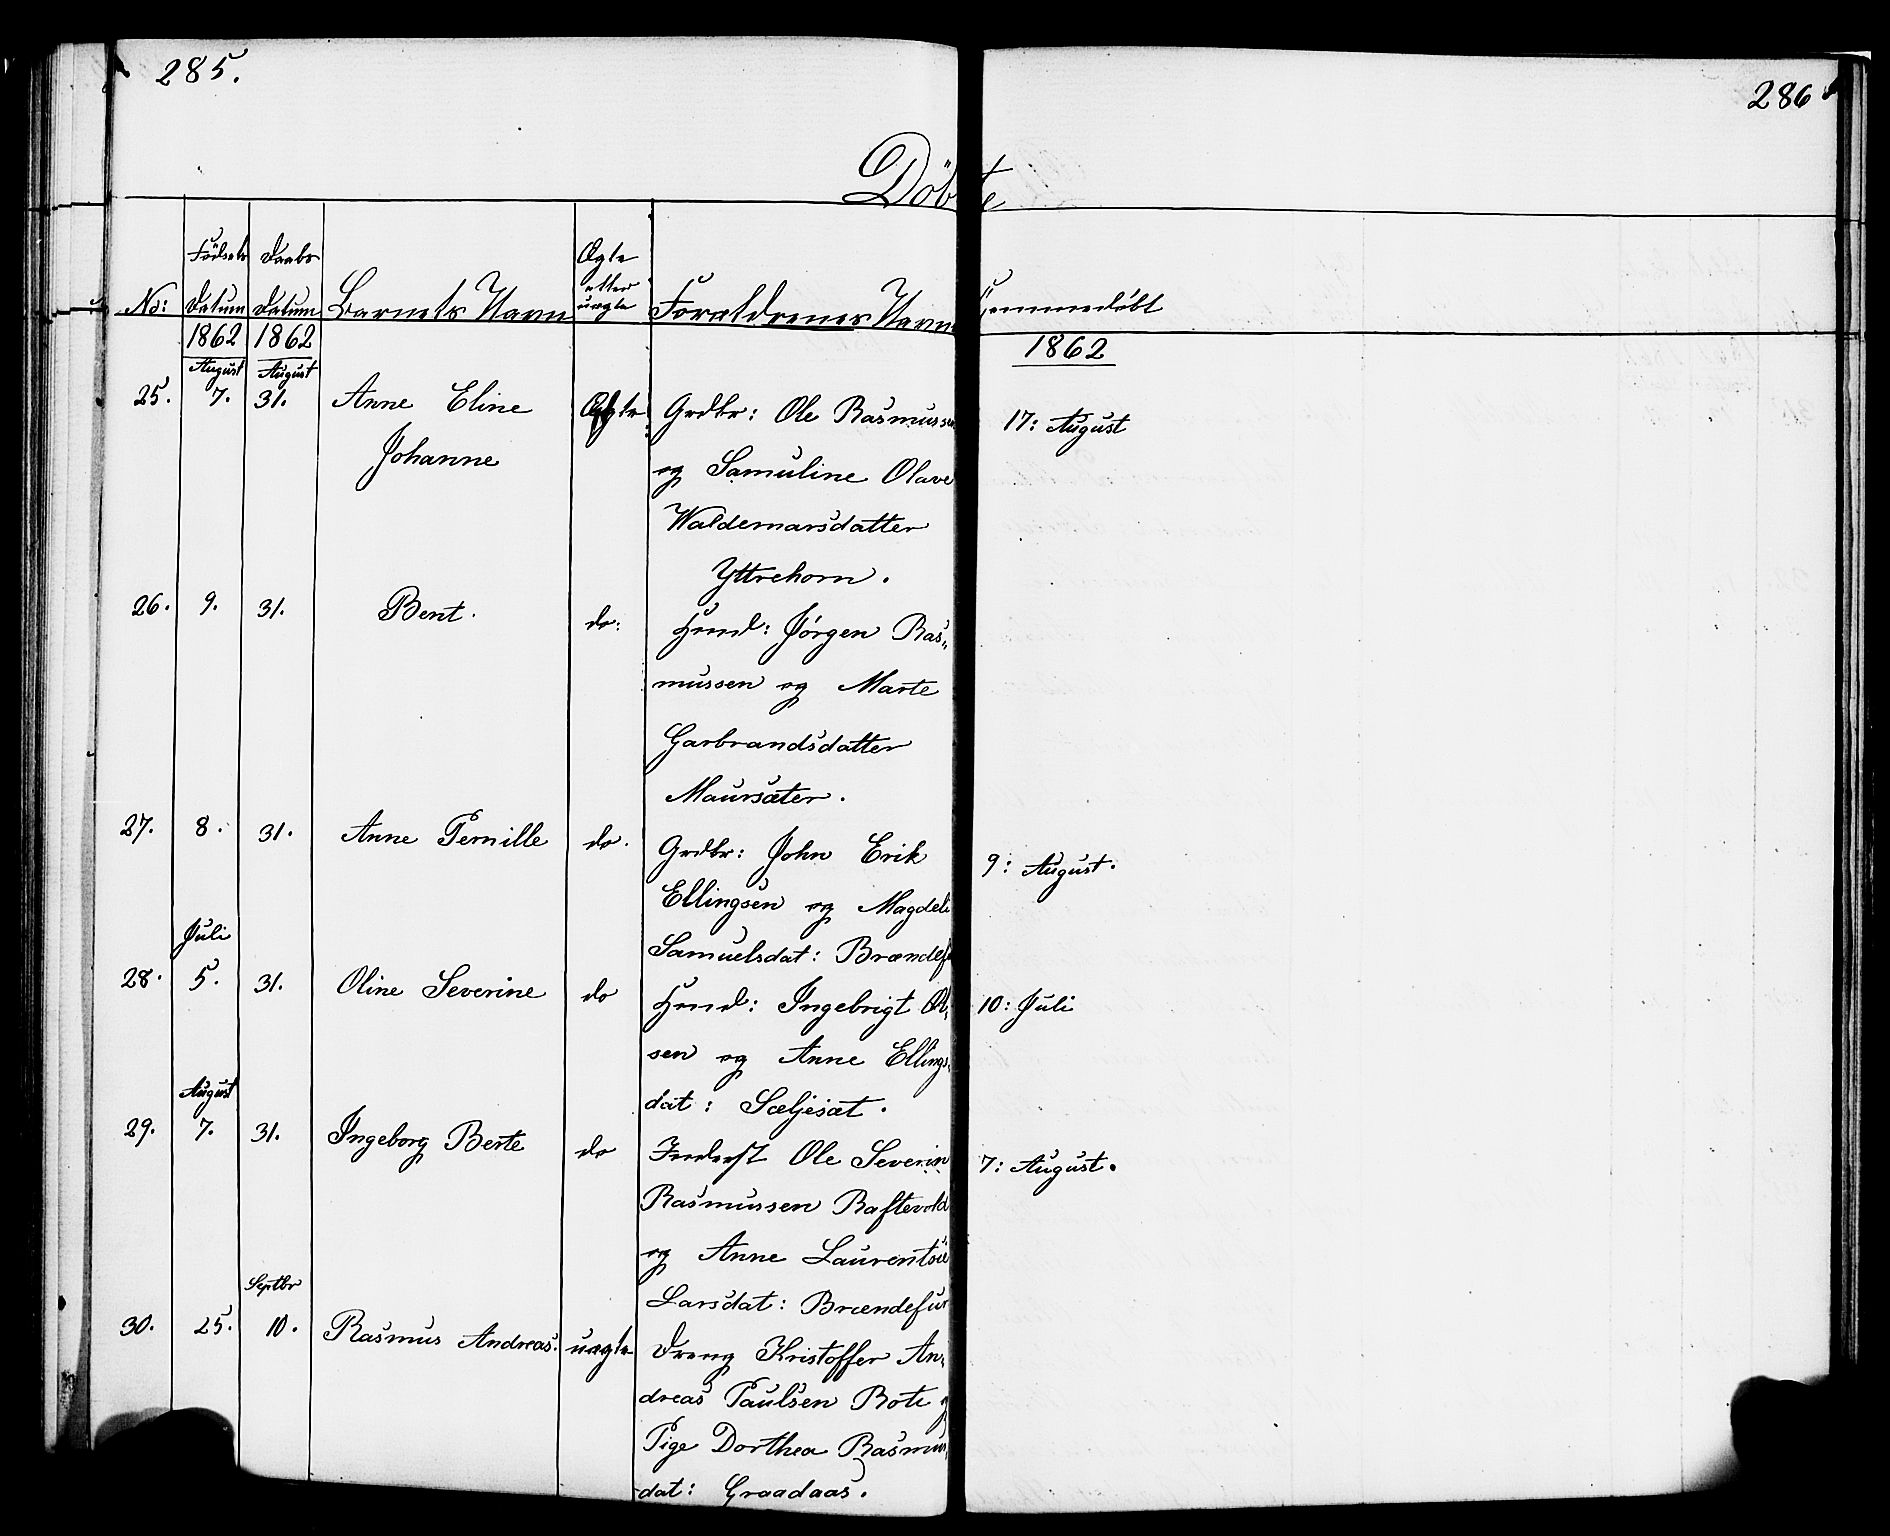 285.
286
Döbte
No:
Födsels Datum
Daabs Datum
Barnets Navn
Ægte eller uægte
Forældrenes Navn
Hjemmedöbt
1862 1862
1862
August August
25. 7. 31. Anne Eline Ægte Grdbr: Ole Rasmussen 17: August
Johanne og Samuline Olave
Waldemarsdatter
Yttrehorn.
26. 9. 31. Bent. do: Hmd: Jörgen Ras„
mussen og Marte
Garbrandsdatter
Maursæter.
27. 8. 31. Anne Pernille do. Grdbr: John Erik 9: August.
Ellingsen og Magdeli
Samuelsdat: Brændef
Juli
28. 5. 31. Oline Severine do Hmd: Ingebrigt Ol- 10: Juli
sen og Anne Ellings-
dat: Sæljesæt.
August
29. 7. 31. Ingeborg Berte do Inderst Ole Severin 7: August.
Rasmussen Raftevold
og Anne Laurentse
Larsdat: Brændefur
Septbr
30. 25. 10. Rasmus Andreas. uægte Dreng Kristoffer An-
dreas Paulsen Rote og
Pige Dorthea Rasmus
dat: Graadaas.